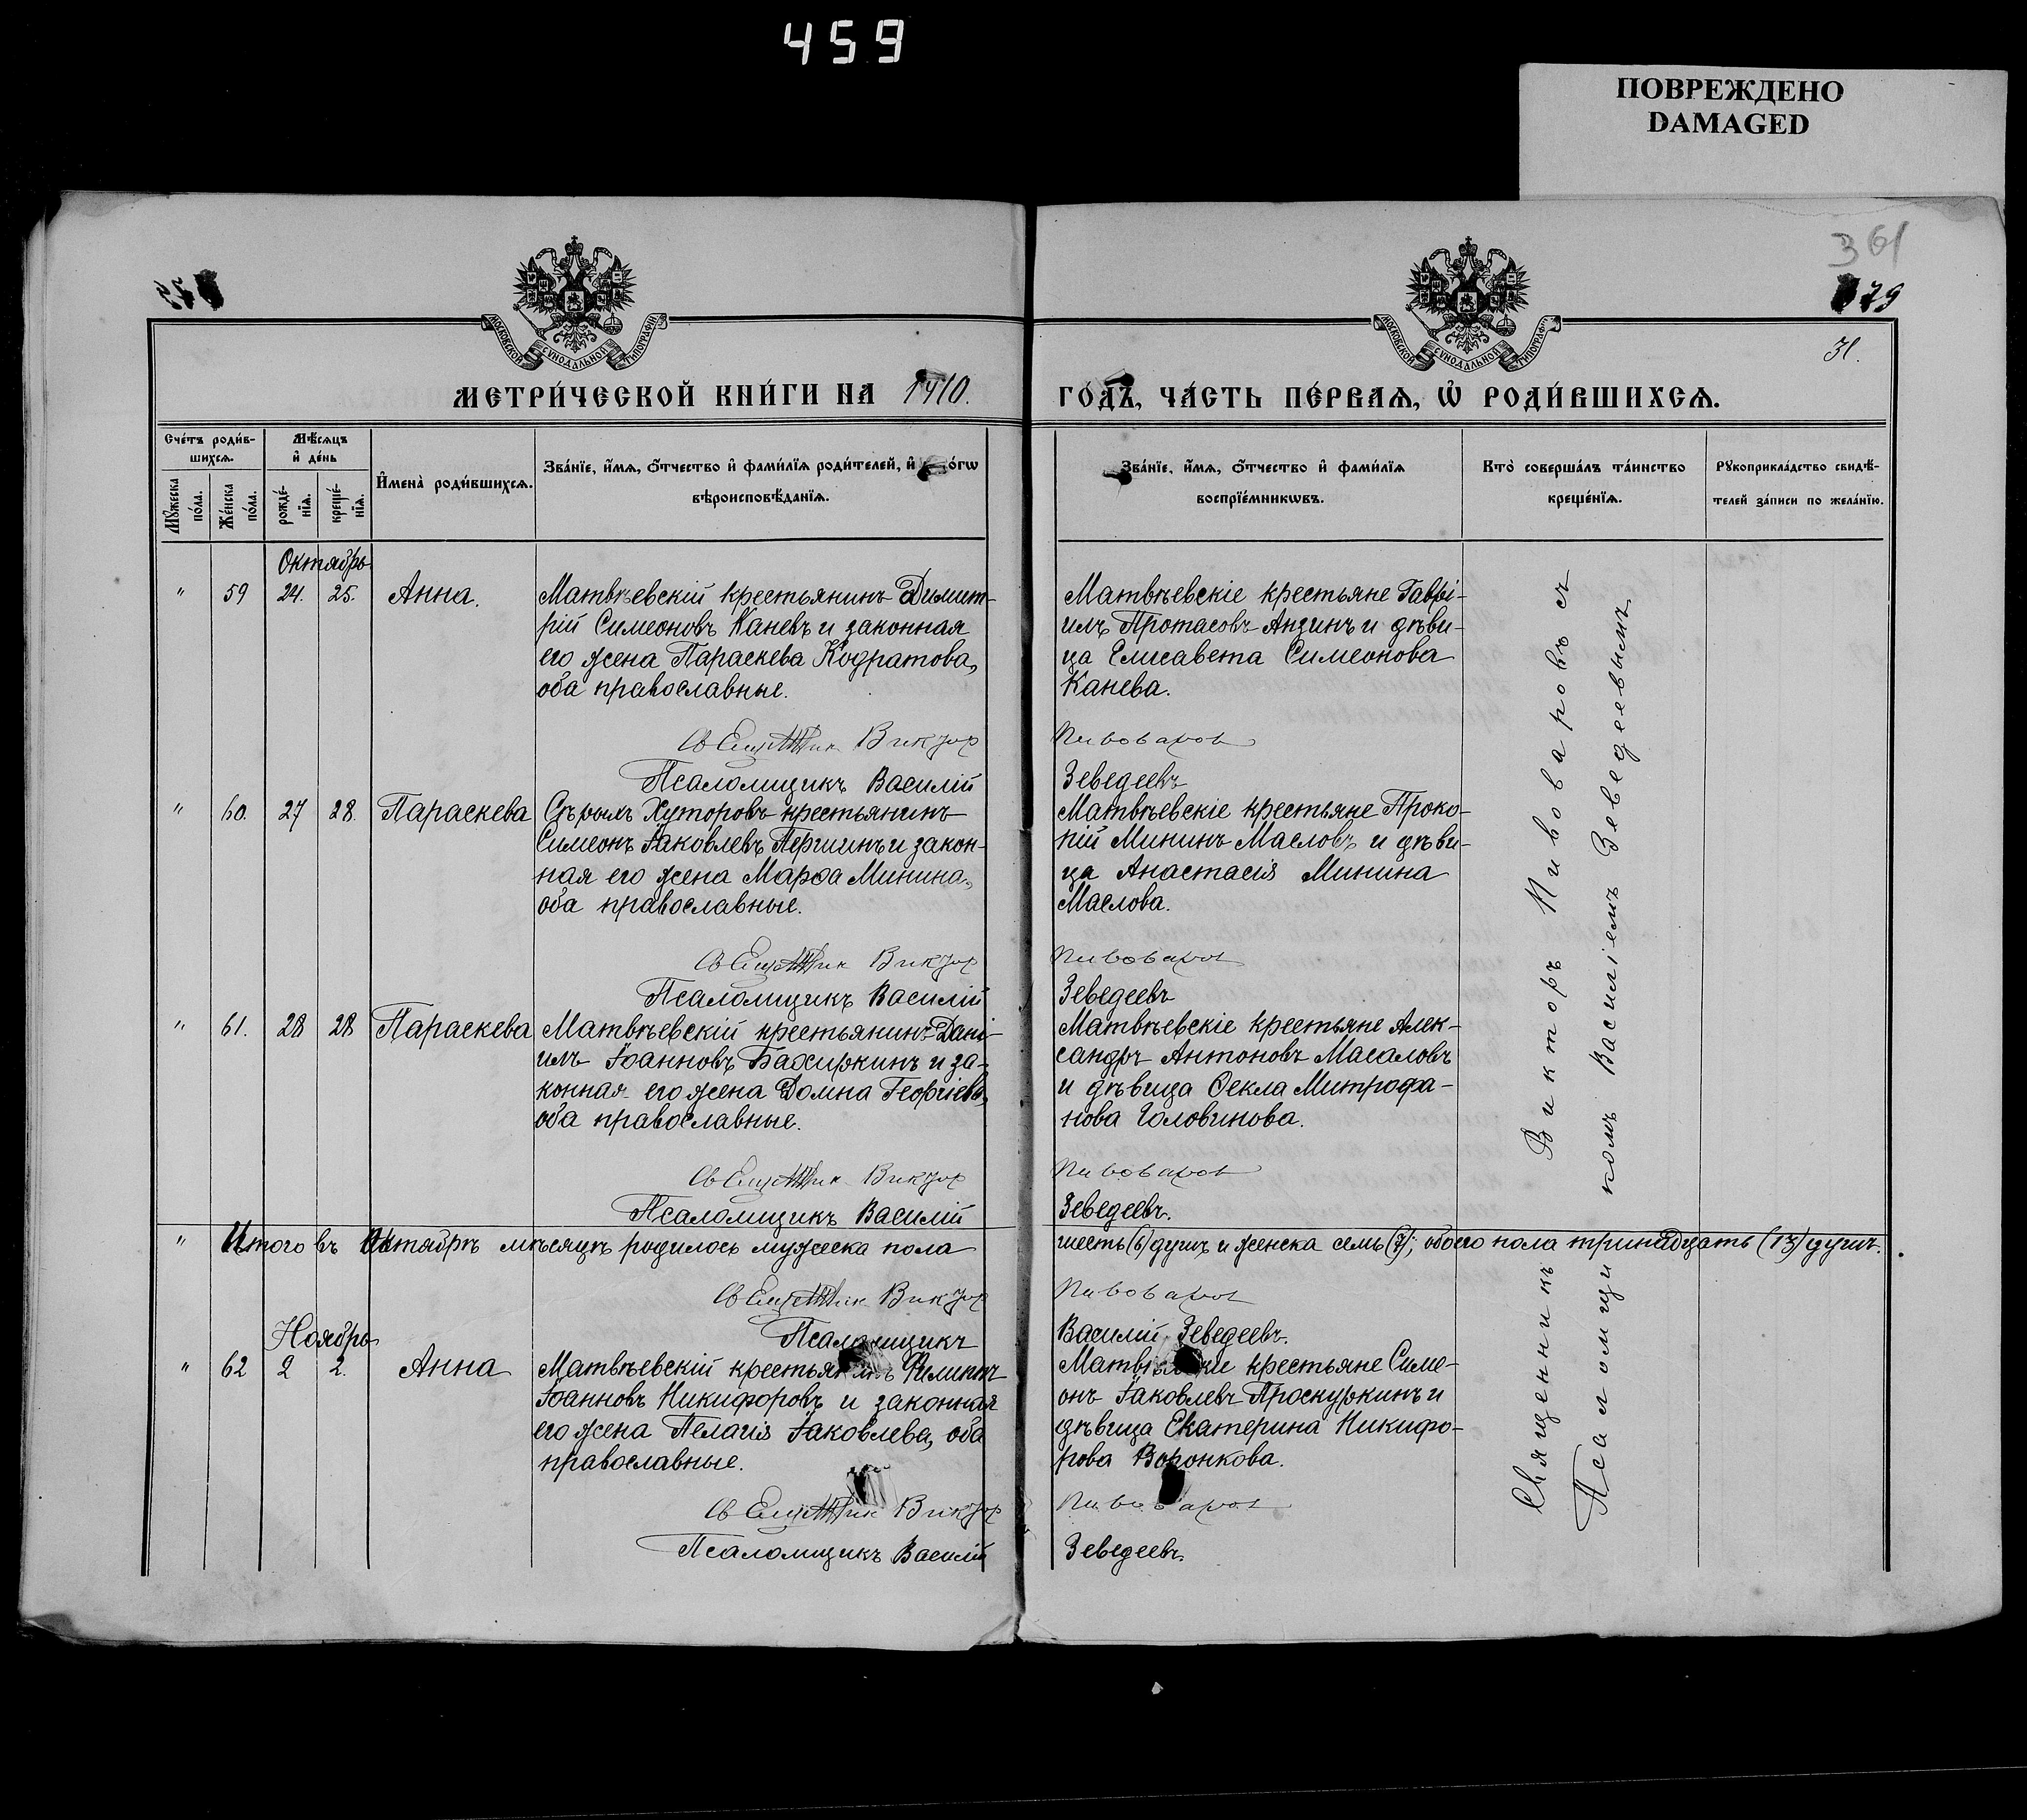 459
ПОВРЕЖДЕНО
DAMAGED
361
79
31.
МОСКОВСКОЙ СѴНОДАЛЬНОЙ ТИПОГРАФІИ
МОСКОВСКОЙ СѴНОДАЛЬНОЙ ТИПОГРАФІИ
МЕТРИ́ЧЕСКОЙ КНИ́ГИ НА 1910.
ГО́ДЪ, ЧА́СТЬ ПЕ́РВАѦ, Ѡ҆ РОДИ́ВШИХСѦ.
Сче́тъ роди́в-
шихсѧ.
Мꙋжеска по́ла.
Же́нска по́ла.
Мѣ́сѧцъ
и҆ де́нь
рожде́-
нїѧ.
креще́-
нїѧ.
И҆мена̀ роди́вшихсѧ.
Зва́нїе, и҆́мѧ, ѻ҆́тчество и҆ фами́лїѧ роди́телей, и҆
вѣроисповѣ́данїѧ.
Зва́нїе, и҆́мѧ, ѻ҆́тчество и҆ фами́лїѧ
воспрїе́мникѡвъ.
Кто̀ соверша́лъ та́инство
креще́нїѧ.
Рꙋкоприкла́дство свидѣ́-
телей за́писи по жела́нїю.
Октябрь
" 59 24. 25. Анна.
Матвѣевскій крестьянинъ Димит-
рій Симеоновъ Каневъ и законная
его жена Параскева Кодратова,
оба православные.
Священник Виктор
Псаломщикъ Василій
Матвѣевскіе крестьяне Гаврі-
илъ Протасовъ Анзинъ и дѣви-
ца Елисавета Симеонова
Канева.
Пивоваров
Зеведеевъ
" 60. 27 28. Параскева
Хуторовъ крестьянинъ
Симеонъ Іаковлевъ Першинъ и закон-
ная его жена Марѳа Минина,
оба православные.
Священник Виктор
Псаломщикъ Василій
Матвѣевскіе крестьяне Проко-
пій Мининъ Масловъ и дѣви-
ца Анастасія Минина
Маслова.
Пивоваров
Зеведеевъ
" 61. 28 28 Параскева
Матвѣевскій крестьянинъ Дані-
илъ Іоанновъ Бахиркинъ и за-
конная его жена Домна Георгіева,
оба православные.
Священник Виктор
Псаломщикъ Василій
Матвѣевскіе крестьяне Алек-
сандръ Антоновъ Масаловъ
и дѣвица Ѳекла Митрофа-
нова Головинова.
Пивоваров
Зеведеевъ.
" Итого въ Октябрѣ мѣсяцѣ родилось мужеска пола шесть (6) душъ и женска семь (7); обоего пола тринадцать (13) душъ.
Священник Виктор Пивоваров
Псаломщикъ Василій Зеведеевъ.
Ноябрь
" 62 2 2. Анна
Матвѣевскій крестьянинъ Филиппъ
Іоанновъ Никифоровъ и законная
его жена Пелагія Іаковлева, оба
православные.
Священник Виктор
Псаломщикъ Василій
Матвѣевскіе крестьяне Симе-
онъ Іаковлевъ Проскуркинъ и
дѣвица Екатерина Никифо-
рова Воронкова.
Пивоваров
Зеведеевъ.
Священникъ Викторъ Пивоваровъ съ
Псаломщикомъ Василіемъ Зеведеевымъ.